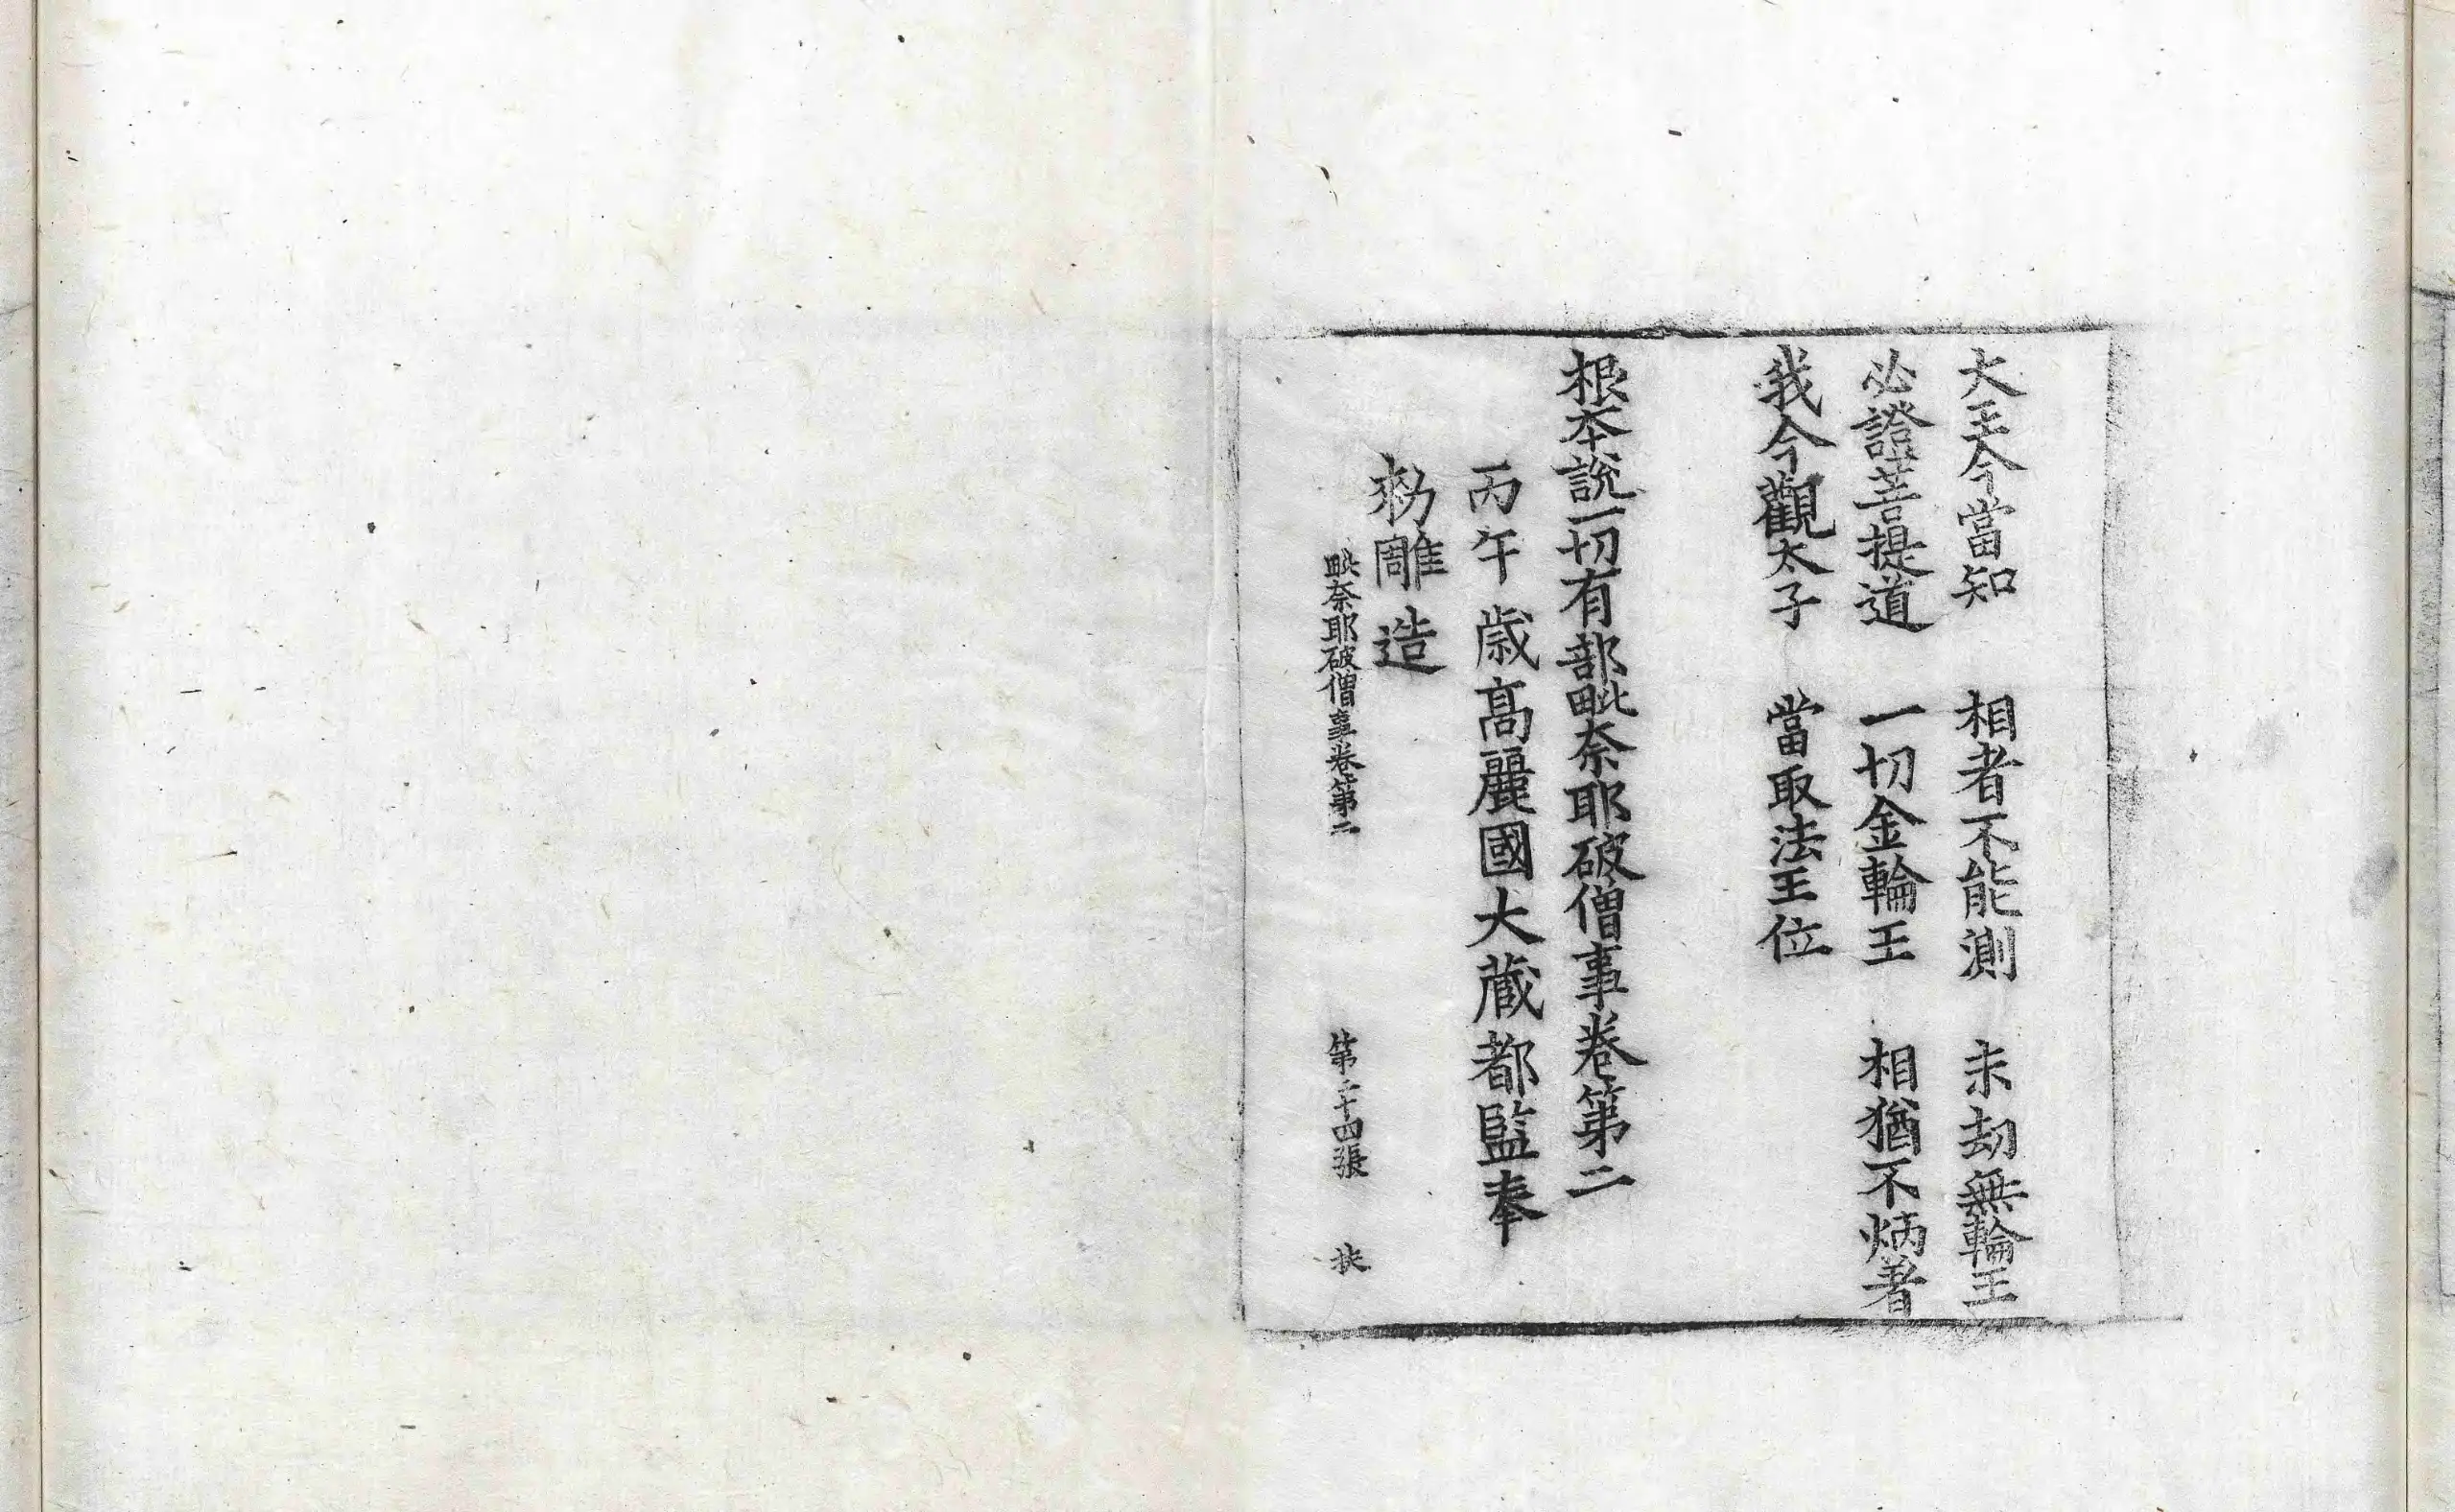 大王今當知　相者不能測　末劫無輪王
必證菩提道　一切金輪王　相猶不炳著
我今觀太子　當取法王位
根本說一切有部毗奈耶破僧事卷第二
丙午歲高麗國大藏都監奉
勅雕造
毗奈耶破僧事卷第二　第二十四張　挾